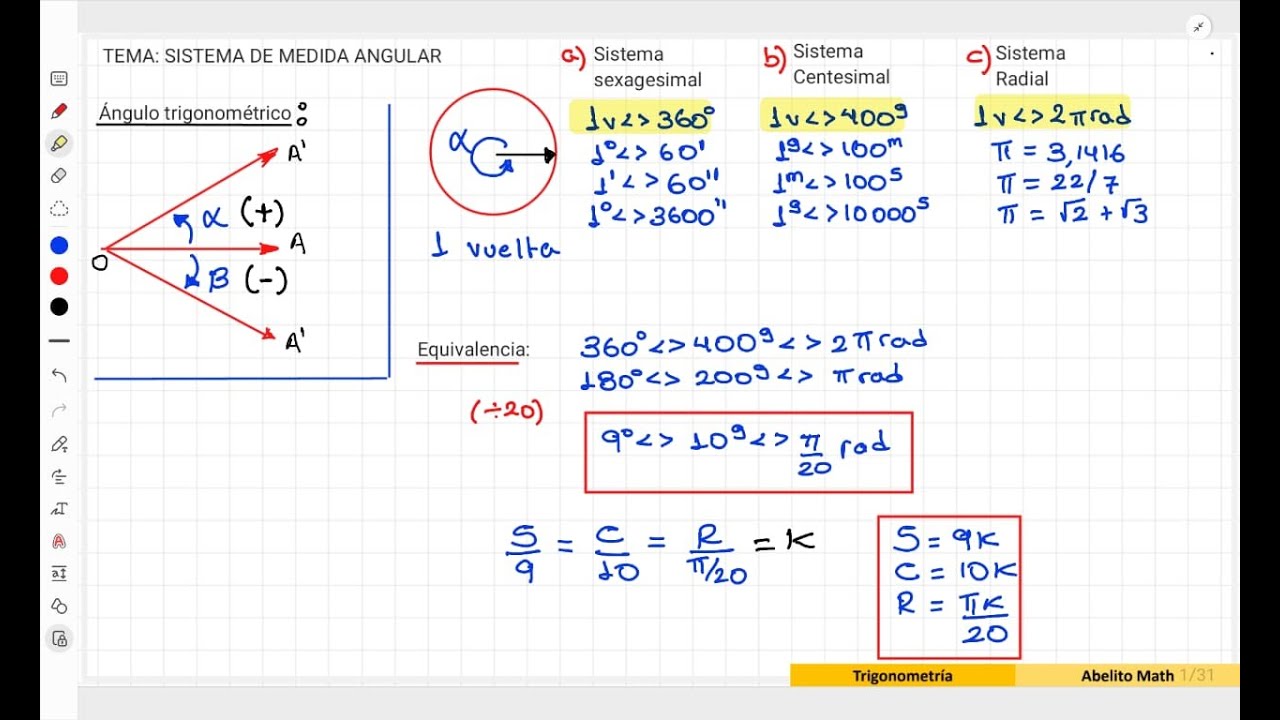 TEMA: SISTEMA DE MEDIDA ANGULAR
Ángulo trigonométrico:
A'
α (+)
A
O
β (-)
A'
α
1 vuelta
a) Sistema
sexagesimal
1v<>360°
1°<>60'
1'<>60''
1°<>3600''
b) Sistema
Centesimal
1v<>400ᵍ
1ᵍ<>100ᵐ
1ᵐ<>100ˢ
1ᵍ<>10000ˢ
c) Sistema
Radial
1v<>2πrad
π = 3,1416
π = 22/7
π = √2 + √3
Equivalencia:
360°<>400ᵍ<>2πrad
180°<>200ᵍ<>πrad
(÷20)
9°<>10ᵍ<>π/20 rad
S/9 = C/10 = R/(π/20) = K
S = 9K
C = 10K
R = πK/20
Trigonometría
Abelito Math 1/31